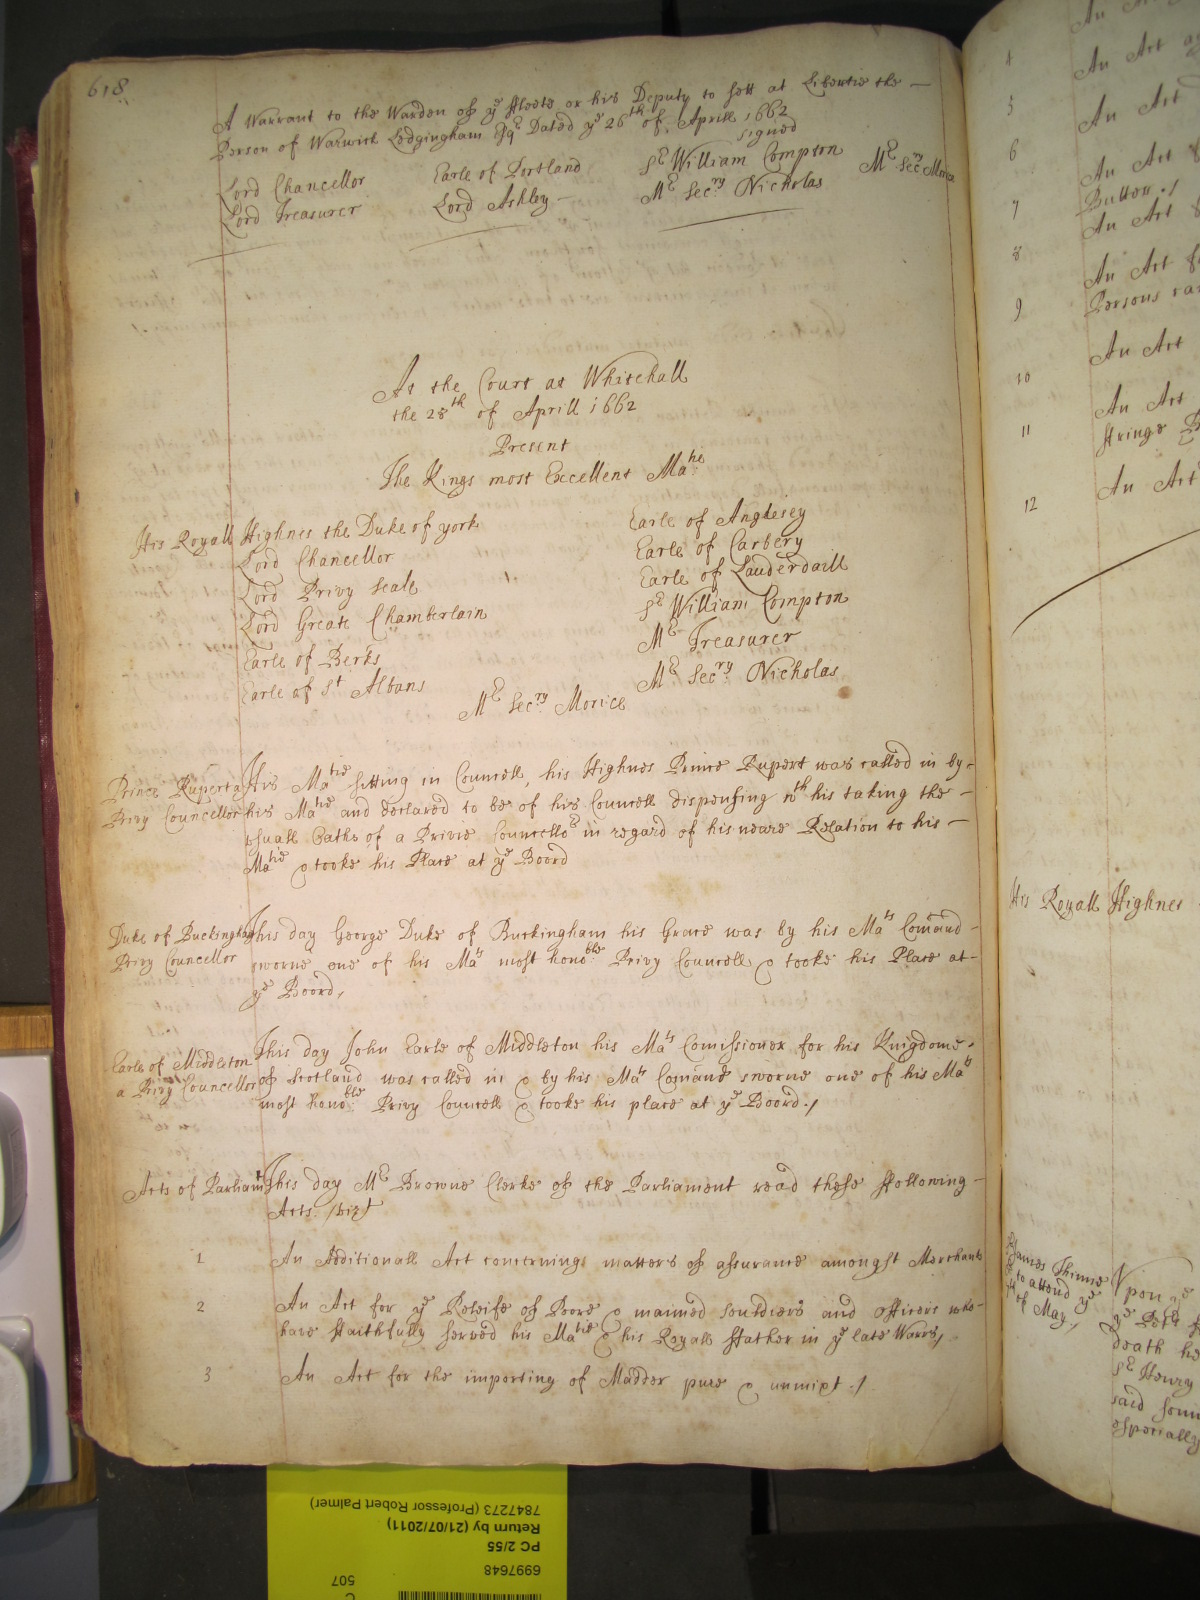 618
A Warrant to the Warden of ye ffleete or his Deputy to sett at Libertie the
Person of Warwick Ledgingham Esqr Dated ye 26th of Aprill 1662
signed
Lord Chancellor Earle of Portland Sr William Compton Mr Secry Morice
Lord Treasurer Lord Ashley Mr Secry Nicholas
At the Court at Whitehall
the 28th of Aprill 1662
Present
The Kings most Excellent Matie
His Royall Highnes the Duke of york Earle of Anglesey
Lord Chancellor Earle of Carbery
Lord Privy Seale Earle of Lauderdaill
Lord Greate Chamberlain Sr William Compton
Earle of Berks Mr Treasurer
Earle of St Albans Mr Secry Nicholas
Mr Secry Morice
Prince Rupert a
Privy Councellor
His Matie sitting in Councell, his Highnes Prince Rupert was called in by
his Matie and declared to be of his Councell dispensing wth his taking the
usuall Oathes of a Privie Councellor in regard of his neare Relation to his
Matie & tooke his Place at ye Boord
Duke of Buckingham
Privy Councellor
This day George Duke of Buckingham his Grace was by his Mats Comand
sworne one of his Mats most honoble Privy Councell & tooke his Place at
ye Boord,
Earle of Middleton
a Privy Councellor
This day John Earle of Middleton his Mats Comissioner for his Kingdome
of Scotland was called in & by his Mats Comand sworne one of his Mats
most honoble Privy Councell & tooke his place at ye Boord./
Acts of Parliamt
This day Mr Browne Clerke of the Parliament read these ffollowing
Acts (vizt)
1 An Additionall Act concerning matters of assurance amongst Merchants
2 An Act for ye Releife of Poore & maimed souldiers and officers who
have ffaithfully served his Matie & his Royall ffather in ye late Warrs,
3 An Act for the importing of Madder pure & unmixt./
4 An Act
5 An Act
6 An Act
Button./
7 An Act
8 An Act
Persons
9 An Act
10 An Act
11 strings
12 An Act
His Royall Highnes
James Thinne
to attend ye
of May./
Vpon ye
ye Peticon
death he
Sr Henry
said
especially
6997648
507
PC 2/55
Return by (21/07/2011)
7847273 (Professor Robert Palmer)